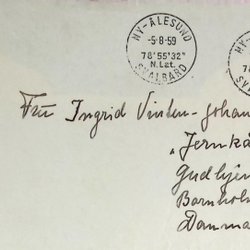 NY-ÅLESUND
-5-8-59
78°55'32"
N.Lat.
SVALBARD
78
SV
Fru Ingrid Vinten-Johan
"Jernkå
Gudhjem
Bornhol
Danma